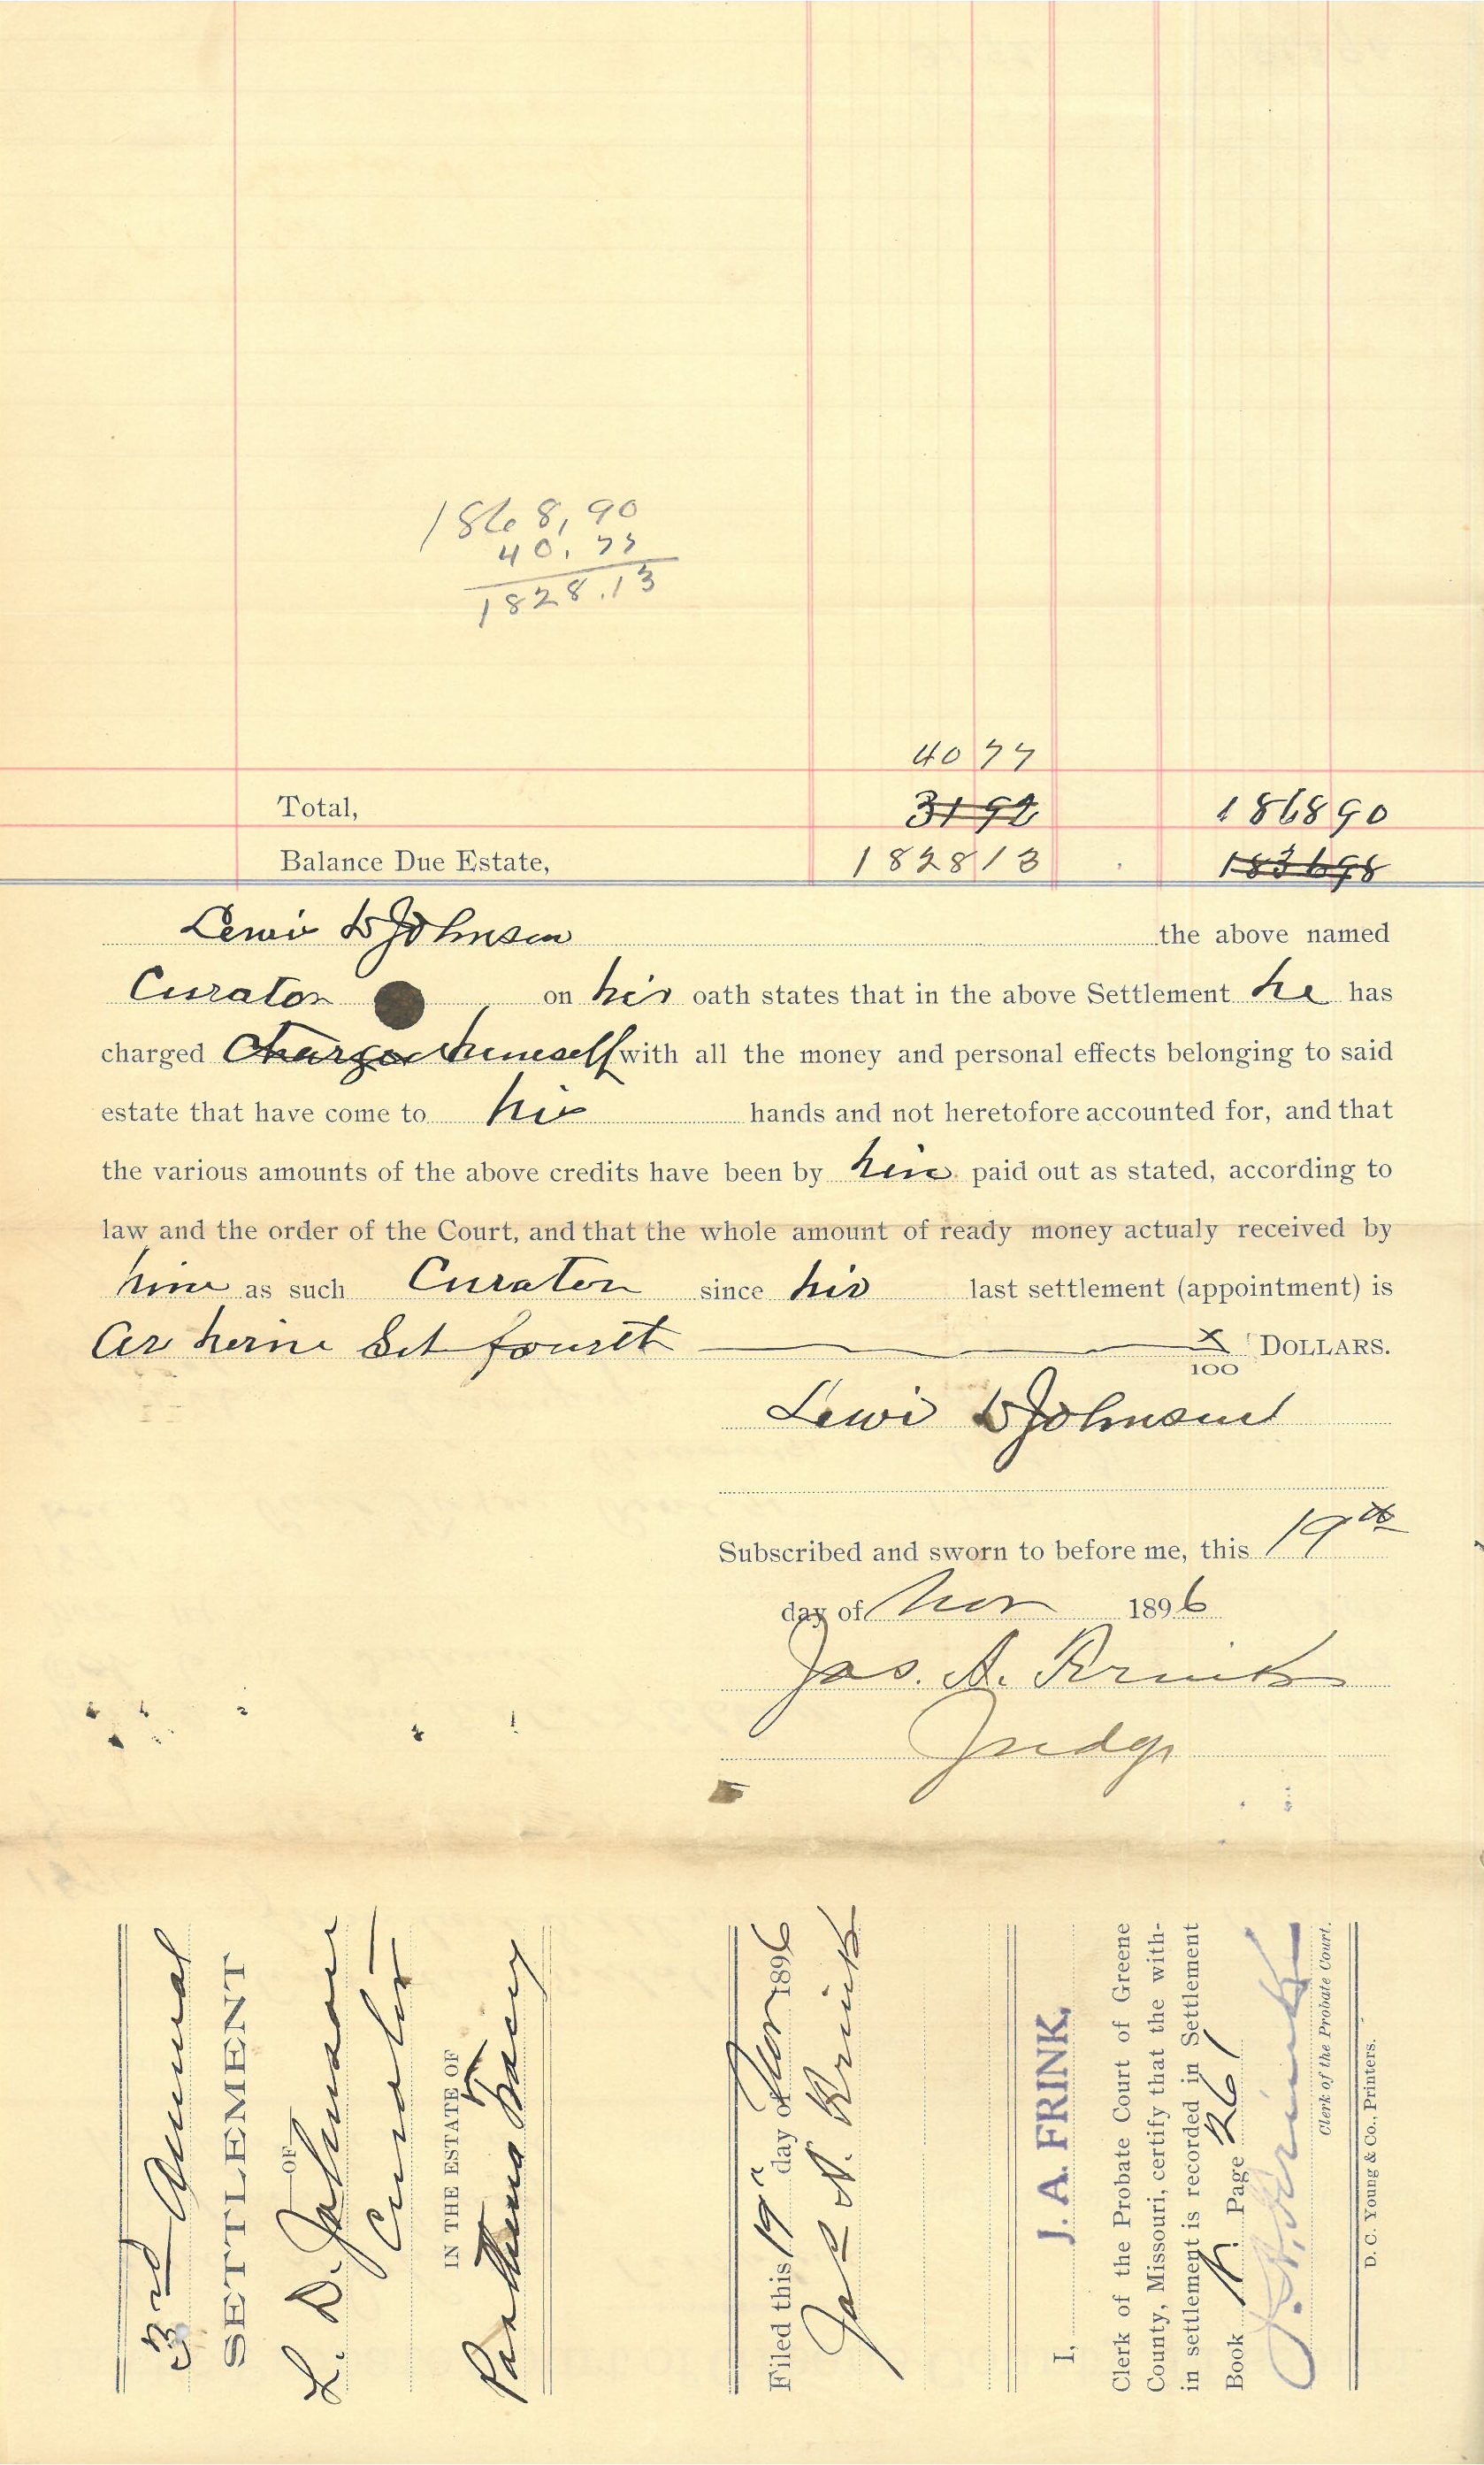 1868,90
40,77
1828.13
40 77
Total, 31 92 1868 90
Balance Due Estate, 1828 13 1836 98
Lewis D Johnson the above named
Curator on his oath states that in the above Settlement he has
charged Charged himself with all the money and personal effects belonging to said
estate that have come to his hands and not heretofore accounted for, and that
the various amounts of the above credits have been by him paid out as stated, according to
law and the order of the Court, and that the whole amount of ready money actualy received by
him as such Curator since his last settlement (appointment) is
as herin Set fourth x/100 DOLLARS.
Lewis D Johnson
Subscribed and sworn to before me, this 19th
day of Nov 1896
Jas. A. Frink
Judge
3rd Annual
SETTLEMENT
OF
L. D. Johnson
Curator
IN THE ESTATE OF
Filed this 19" day of Nov 1896
Jas A. Frink
I, J. A. FRINK,
Clerk of the Probate Court of Greene
County, Missouri, certify that the with-
in settlement is recorded in Settlement
Book K Page 261
J. A. Frink
Clerk of the Probate Court.
D. C. Young & Co., Printers.